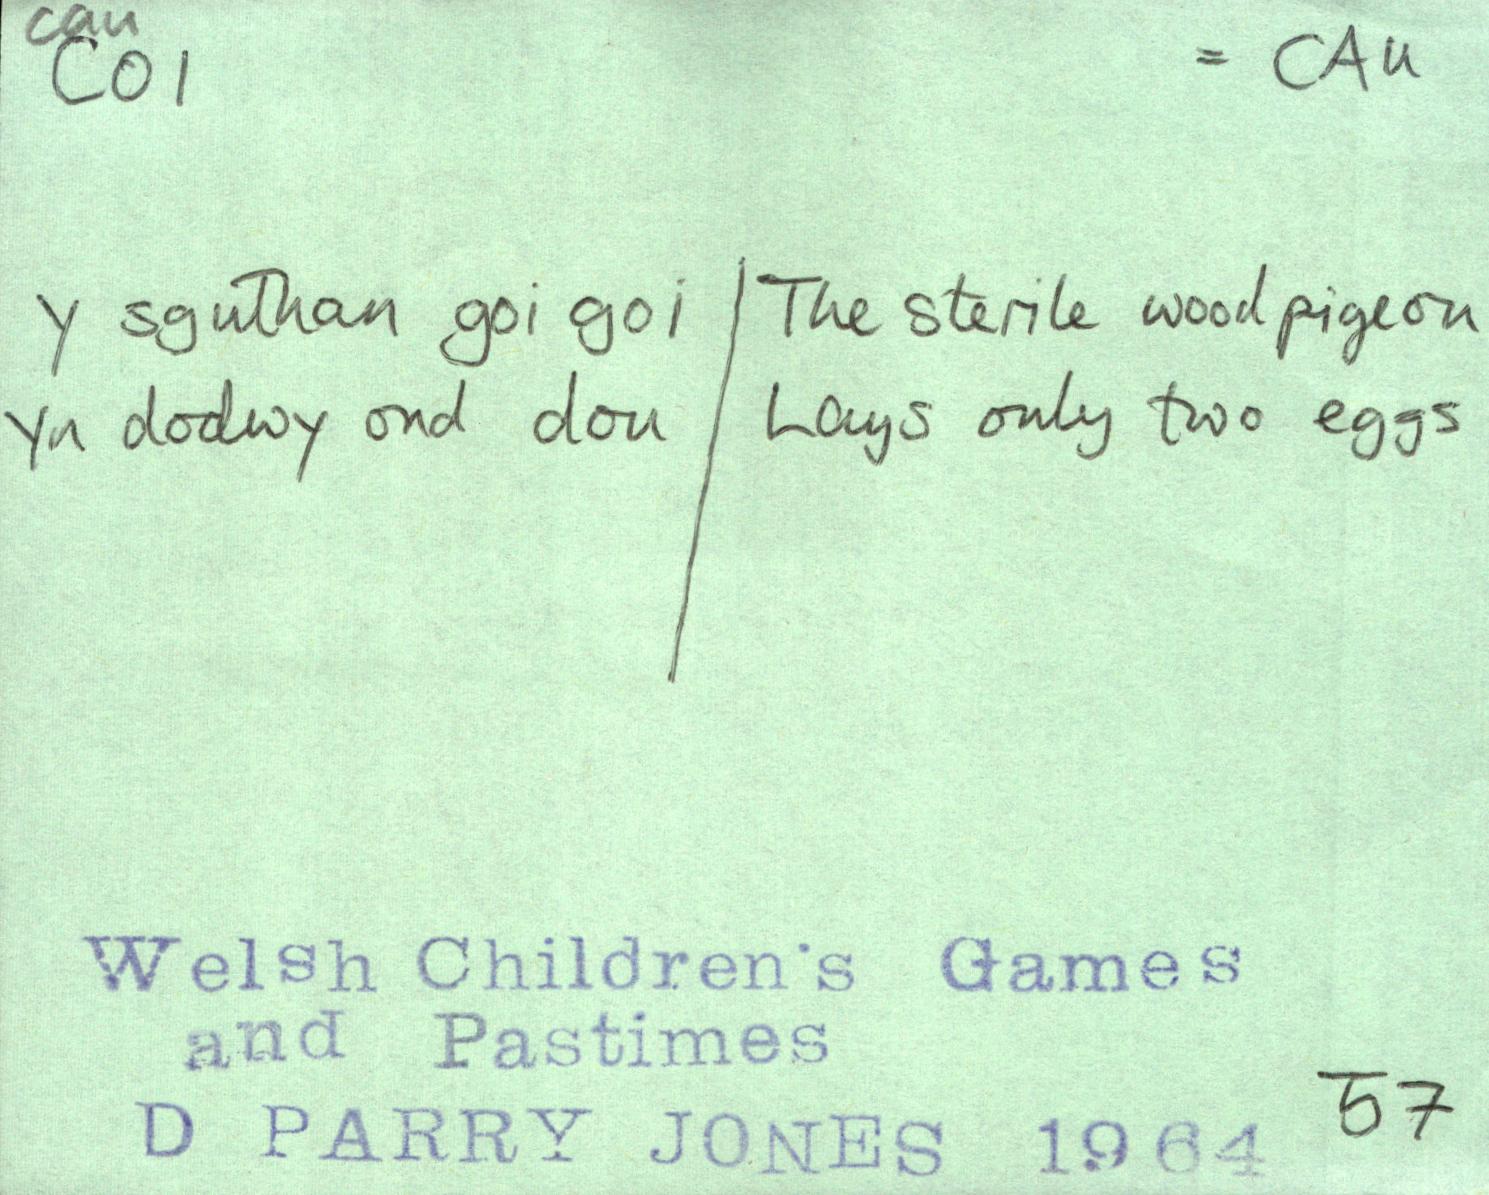 cau
COI = CAU
Y sguthan goi goi / The sterile wood pigeon
Yn dodwy ond dou / Lays only two eggs
Welsh Children's Games
and Pastimes
D PARRY JONES 1964 57